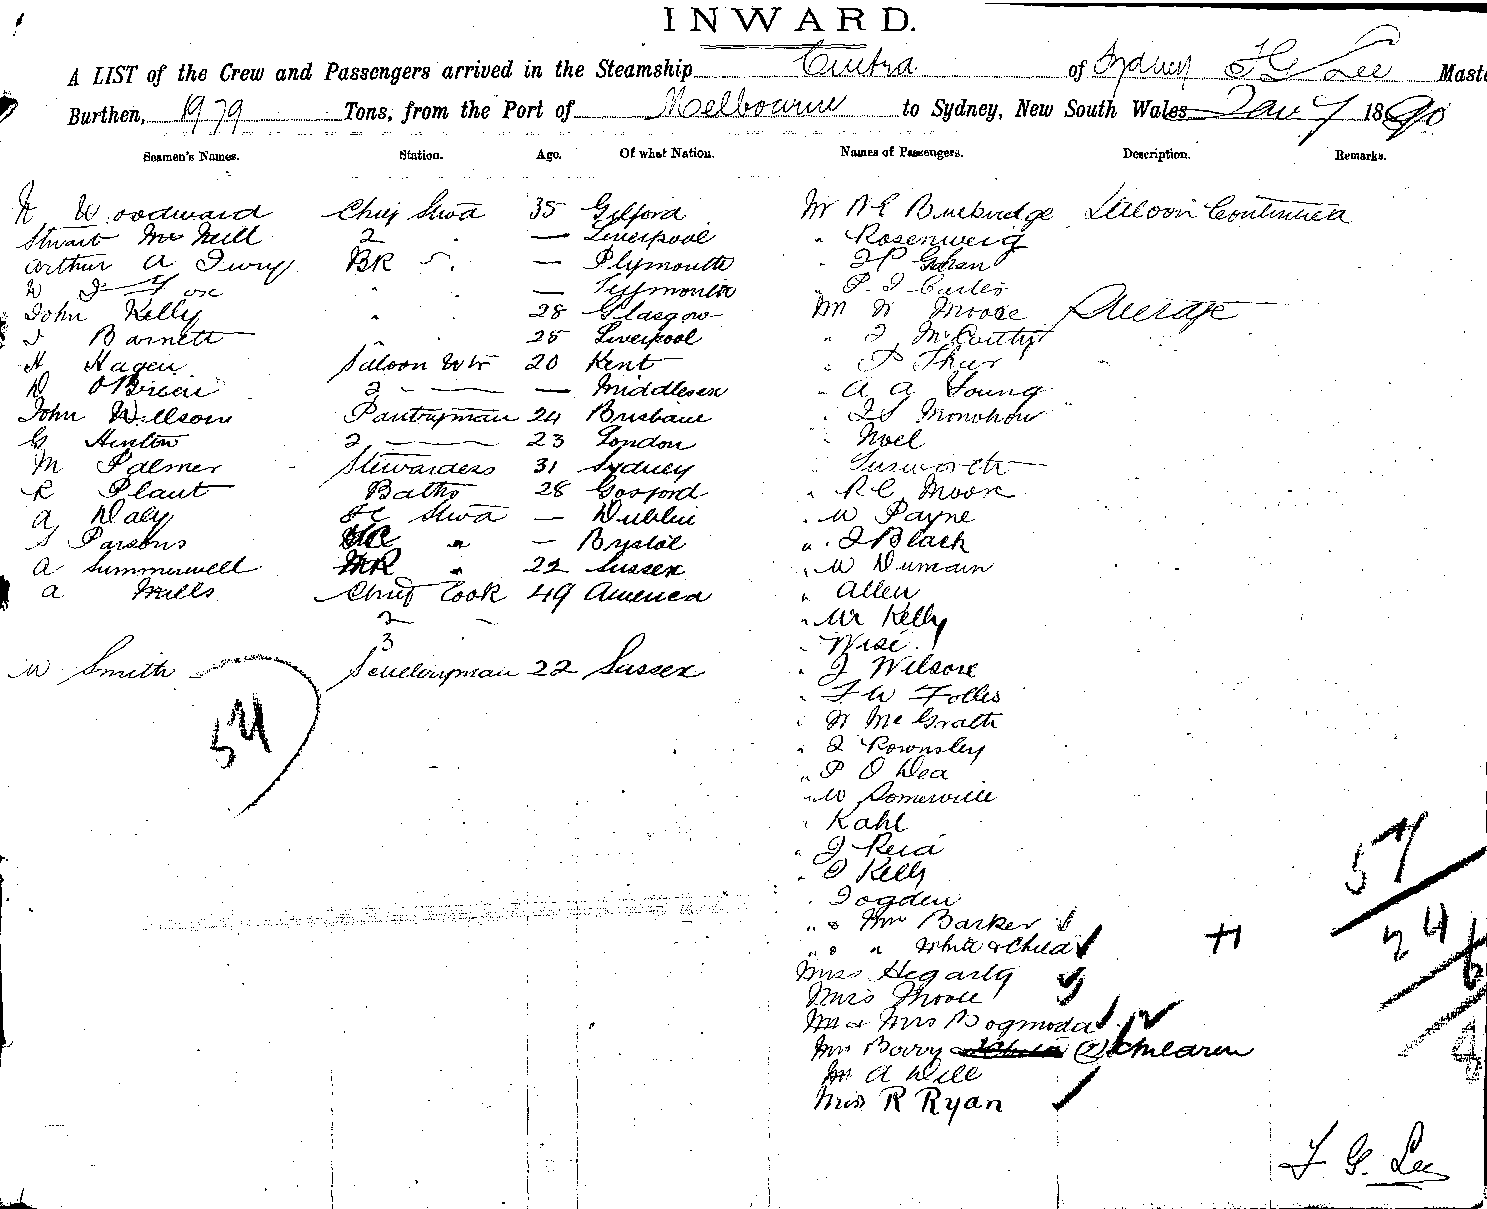 INWARD.
A LIST of the Crew and Passengers arrived in the Steamship Cintra of Sydney F G Lee Maste
Burthen, 1979 Tons, from the Port of Melbourne to Sydney, New South Wales Jan 7 1890
Seamen's Names. Station. Age. Of what Nation. Names of Passengers. Description. Remarks.
Woodward Chief Stwd 35 Mr Burbridge Saloon Continued
Stuart McNeill 2 — Liverpool " Rosenweig
Arthur A BR — Plymouth "
Fox " —
John Kelly " 28 Glasgow Mr W Moore Steerage
Barnett 25 Liverpool " J McCarthy
H Hagen Saloon Wtr 20 Kent "
D O'Brien 2 — — Middlesex " A A Young
John Willson Pantryman 24 Brisbane " Monohow
G Hinton 2 — 23 London " Noel
M Palmer Stewardess 31 Sydney "
R Plant Baths 28 Gosford " R C Moore
A Daly FC Stwd — Dublin " W Payne
S Parsons " — Brystol " J Black
A Summerwell " 22 Sussex " W Dumain
A Mills Chief Cook 49 America " Allen
2 " " Mr Kelly
3 " Wise
W Smith Sculleryman 22 Sussex " J Wilson
" F W Folles
54 " W McGrath
" J Rownsley
" P O Dea
" W Somerville
" Kahl
" J Reid
" J Kelly
" Jogden
" " Mrs Barker
" " " White & Child
Miss Hegarty
Mrs Moore
Mr & Mrs Bogmoda
Mrs Barry (2) children
Mr A Dill
Miss R Ryan
57
24
6
8
F. G. Lee